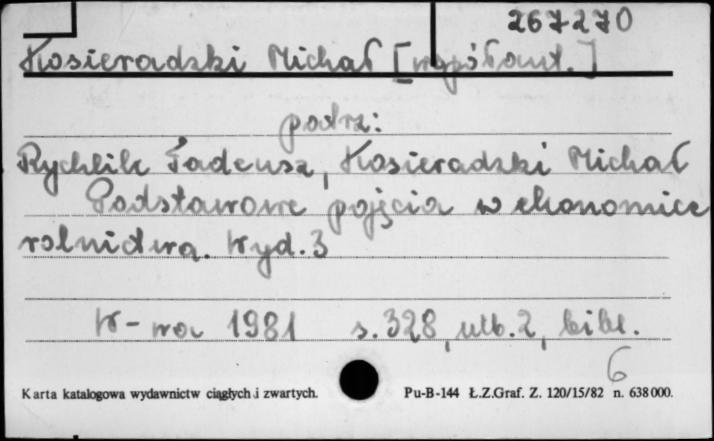 267270
Kosieradzki Michał [współaut.]
podrz:
Rychlik Tadeusz, Kosieradzki Michał
Podstawowe pojęcia w ekonomice
rolnictwa. Wyd. 3
W-wa 1981 s. 328, nlb. 2, bibl.
6
Karta katalogowa wydawnictw ciągłych i zwartych. Pu-B-144 Ł.Z.Graf. Z. 120/15/82 n. 638000.